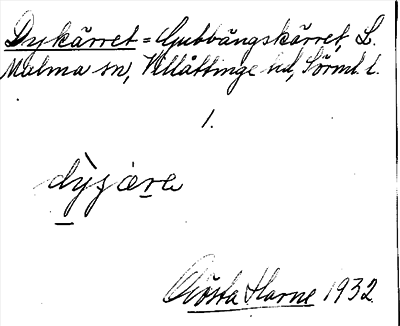 Dykärret = Gubbängskärret, L.
Malma sn, Villåttinge hd, Sörml. l.
1.
dy̆ʒæra
Gösta Harne 1932